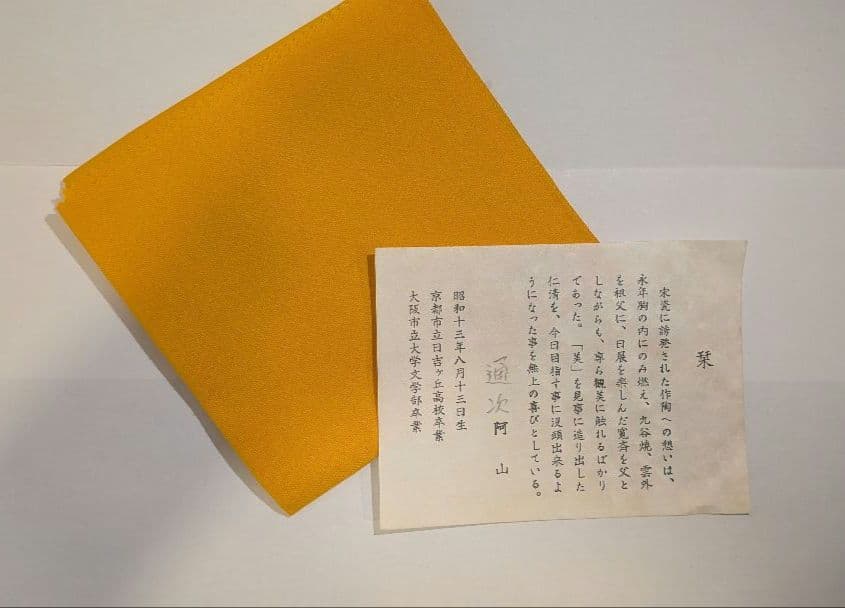 栞
宋瓷に誘発された作陶への想いは、
永年胸の内にのみ燃え、九谷焼、雲外
を祖父に、日展を楽しんだ寛斉を父と
しながらも、専ら観美に触れるばかり
であった。「美」を見事に造り出した
仁清を、今日目指す事に没頭出来るよ
うになった事を無上の喜びとしている。
阿山
昭和十三年八月十三日生
京都市立日吉ヶ丘高校卒業
大阪市立大学文学部卒業